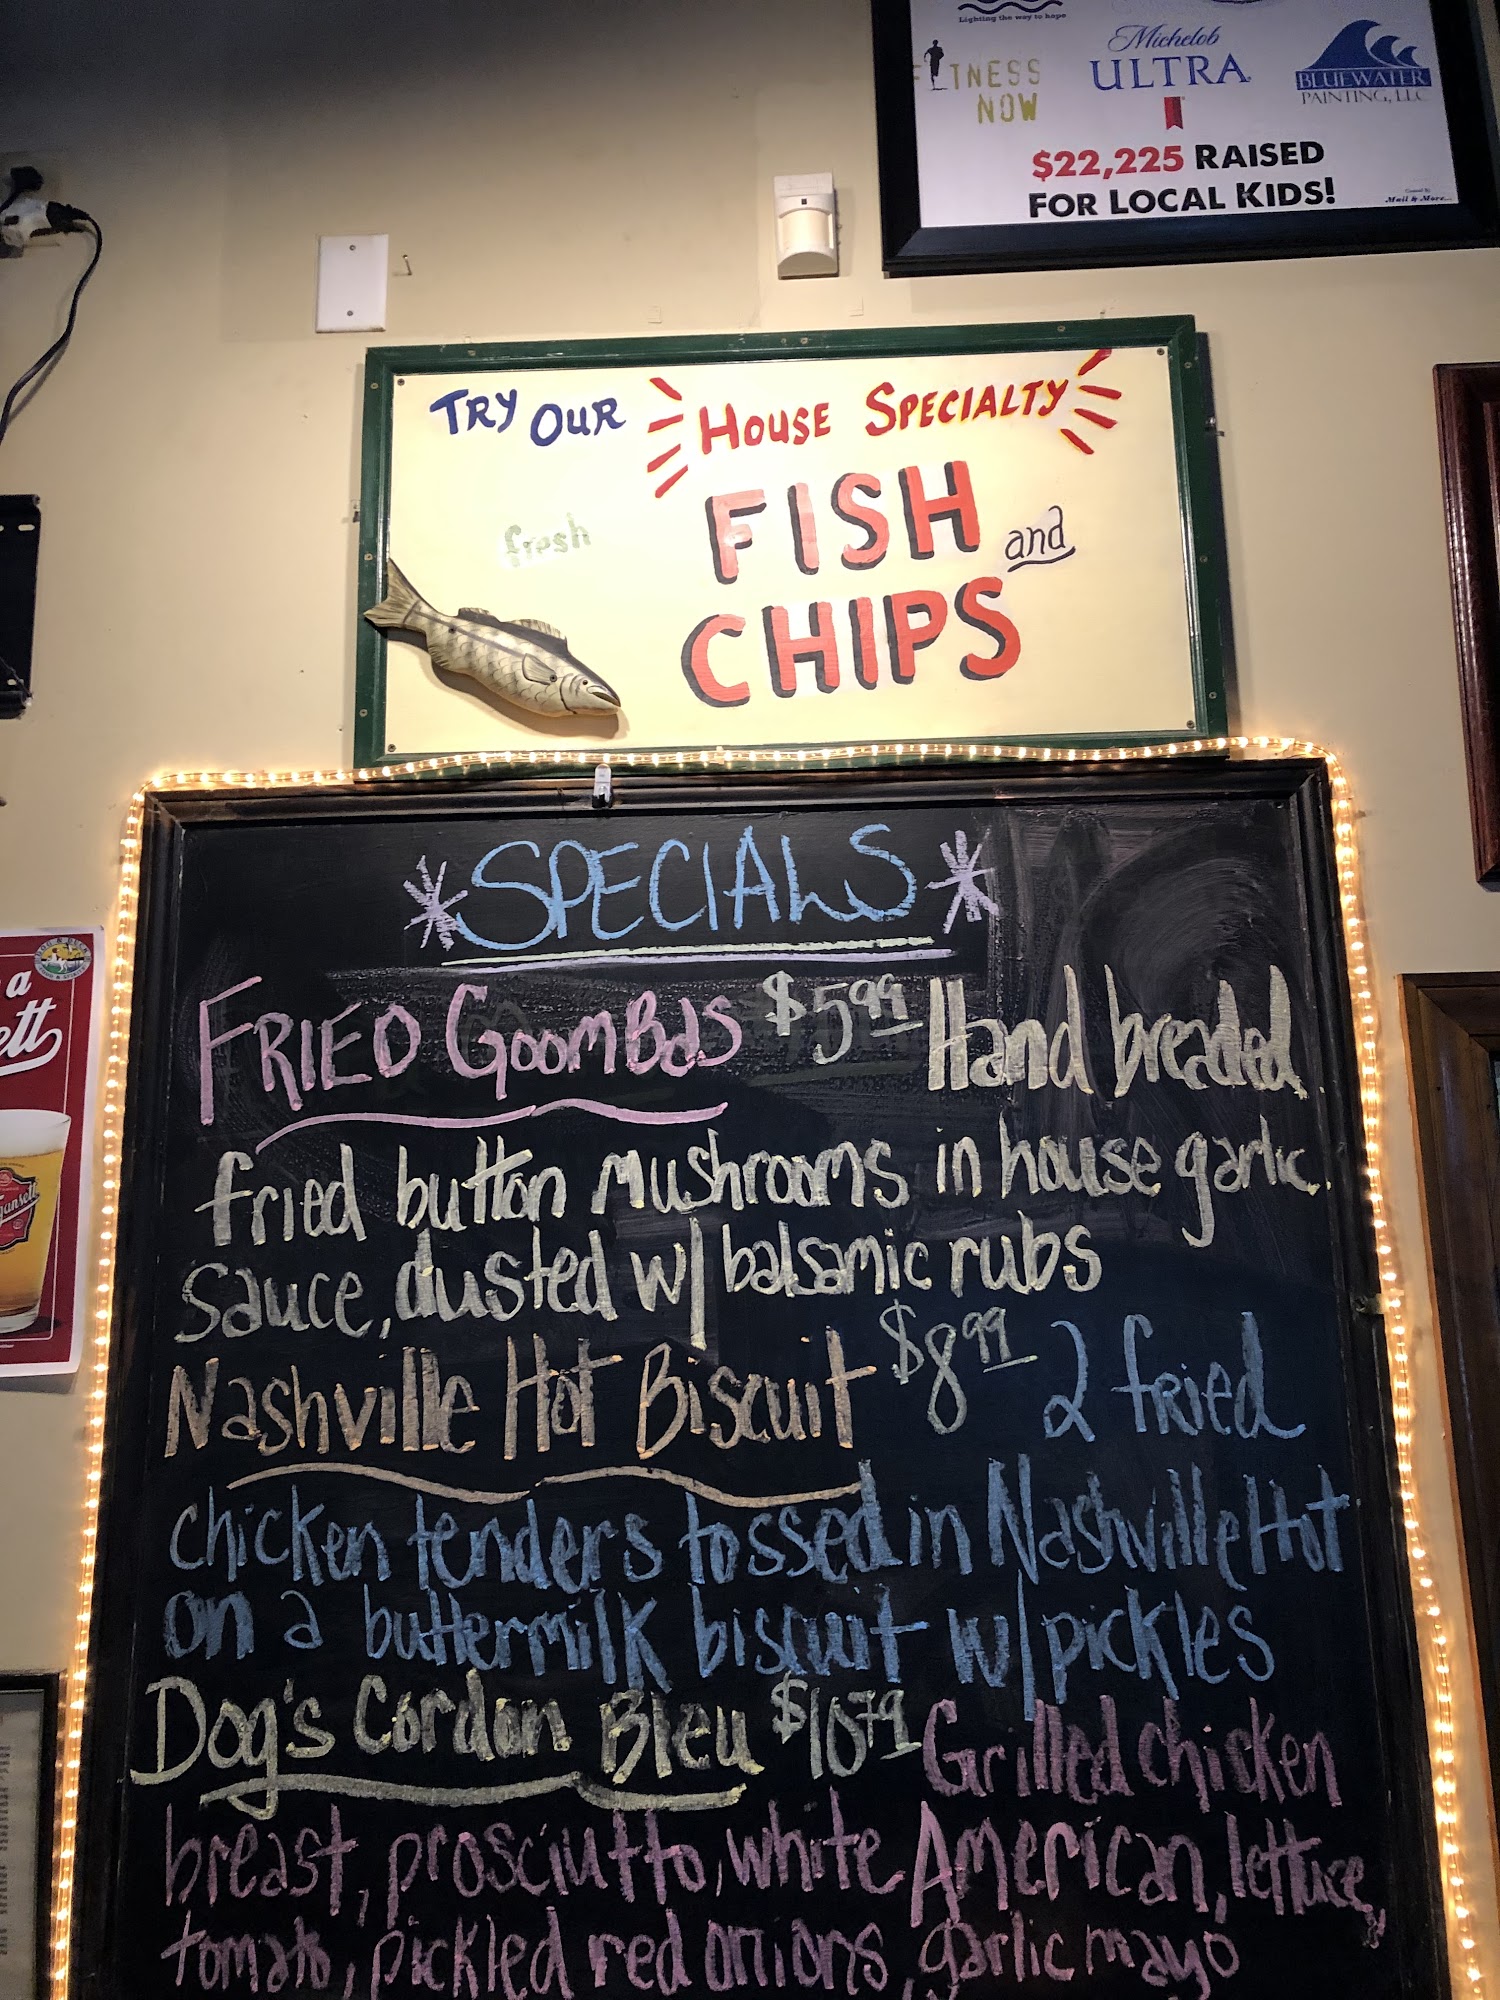 Lighting the way to hope
FITNESS
NOW
Michelob
ULTRA
BLUEWATER
PAINTING, LLC
$22,225 RAISED
FOR LOCAL KIDS!
Mail & More...
TRY OUR
HOUSE SPECIALTY
fresh
FISH and
CHIPS
*SPECIALS*
FRIED GOOMBAS $5.99 Hand breaded
fried button mushrooms in house garlic
sauce, dusted w/ balsamic rubs
Nashville Hot Biscuit $8.99 2 fried
chicken tenders tossed in Nashville Hot
on a buttermilk biscuit w/ pickles
Dog's Cordon Bleu $10.79 Grilled chicken
breast, prosciutto, white American, lettuce,
tomato, pickled red onions, garlic mayo
a
ett